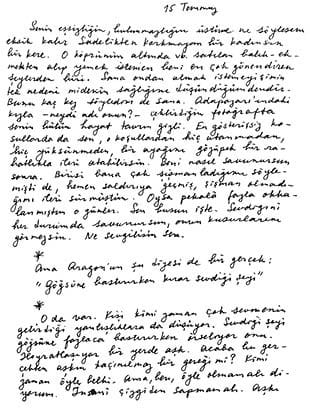 15 Temmuz
Senin eşsizliğin, bulunmazlığın üstüne ne söylesem
eksik kalır. Sadelikten korkmayan bir kadınsın
bir kere. O köprünün altında vb. satılan balık-ek-
mekten alıp yemek istemen beni en çok gönendiren
şeylerden biri. Sana ondan almak istemeyişimin
tek nedeni midenin sağlığını düşündüğümdendir.
Bunu kaç kez söyledim de sana. Adapazarı'ndaki
kışla - neydi adı onun? - çektirdiğin fotoğrafta
senin bütün hayat tavrın gizli. En gösterişli ko-
şullarda da sen, o koşullardan hiç utanmadan,
hiç yüksünmeden, bir ayağını göğüpek bir ra-
hatlıkla ileri atabilirsin. Beni nasıl savunursun
sonra. Birisi bana çok şişmanladığımı söyle-
mişti de, hemen saldırıya geçmiş, şişman olmadı-
ğımı ileri sürmüştün. Oysa pekala fazla okka-
lanmıştım o günler. Sen busun işte. Sevdiğini
her durumda savunursun, onun kusurlarını
görmezsin. Ne sevgilisin sen.
*
Ama Aragon'un şu dizesi de bir gerçek:
"Göğsüne bastırırken kırar sevdiği şeyi"
*
O da var. Kişi kimi zaman çok sevmenin
getirdiği yanlışlıklara da düşüyor. Sevdiği şeyi
göğsüne fazlaca bastırırken örseliyor onu.
Hoyratlaşıyor bir yerde aşk. Acaba bu ger-
çekten aşkın kaçınılmaz bir gereği mi? Kimi
zaman öyle belki. Ama, ben, öyle olmamalı di-
yorum. İnsani çizgiden sapmamalı. Aşkı